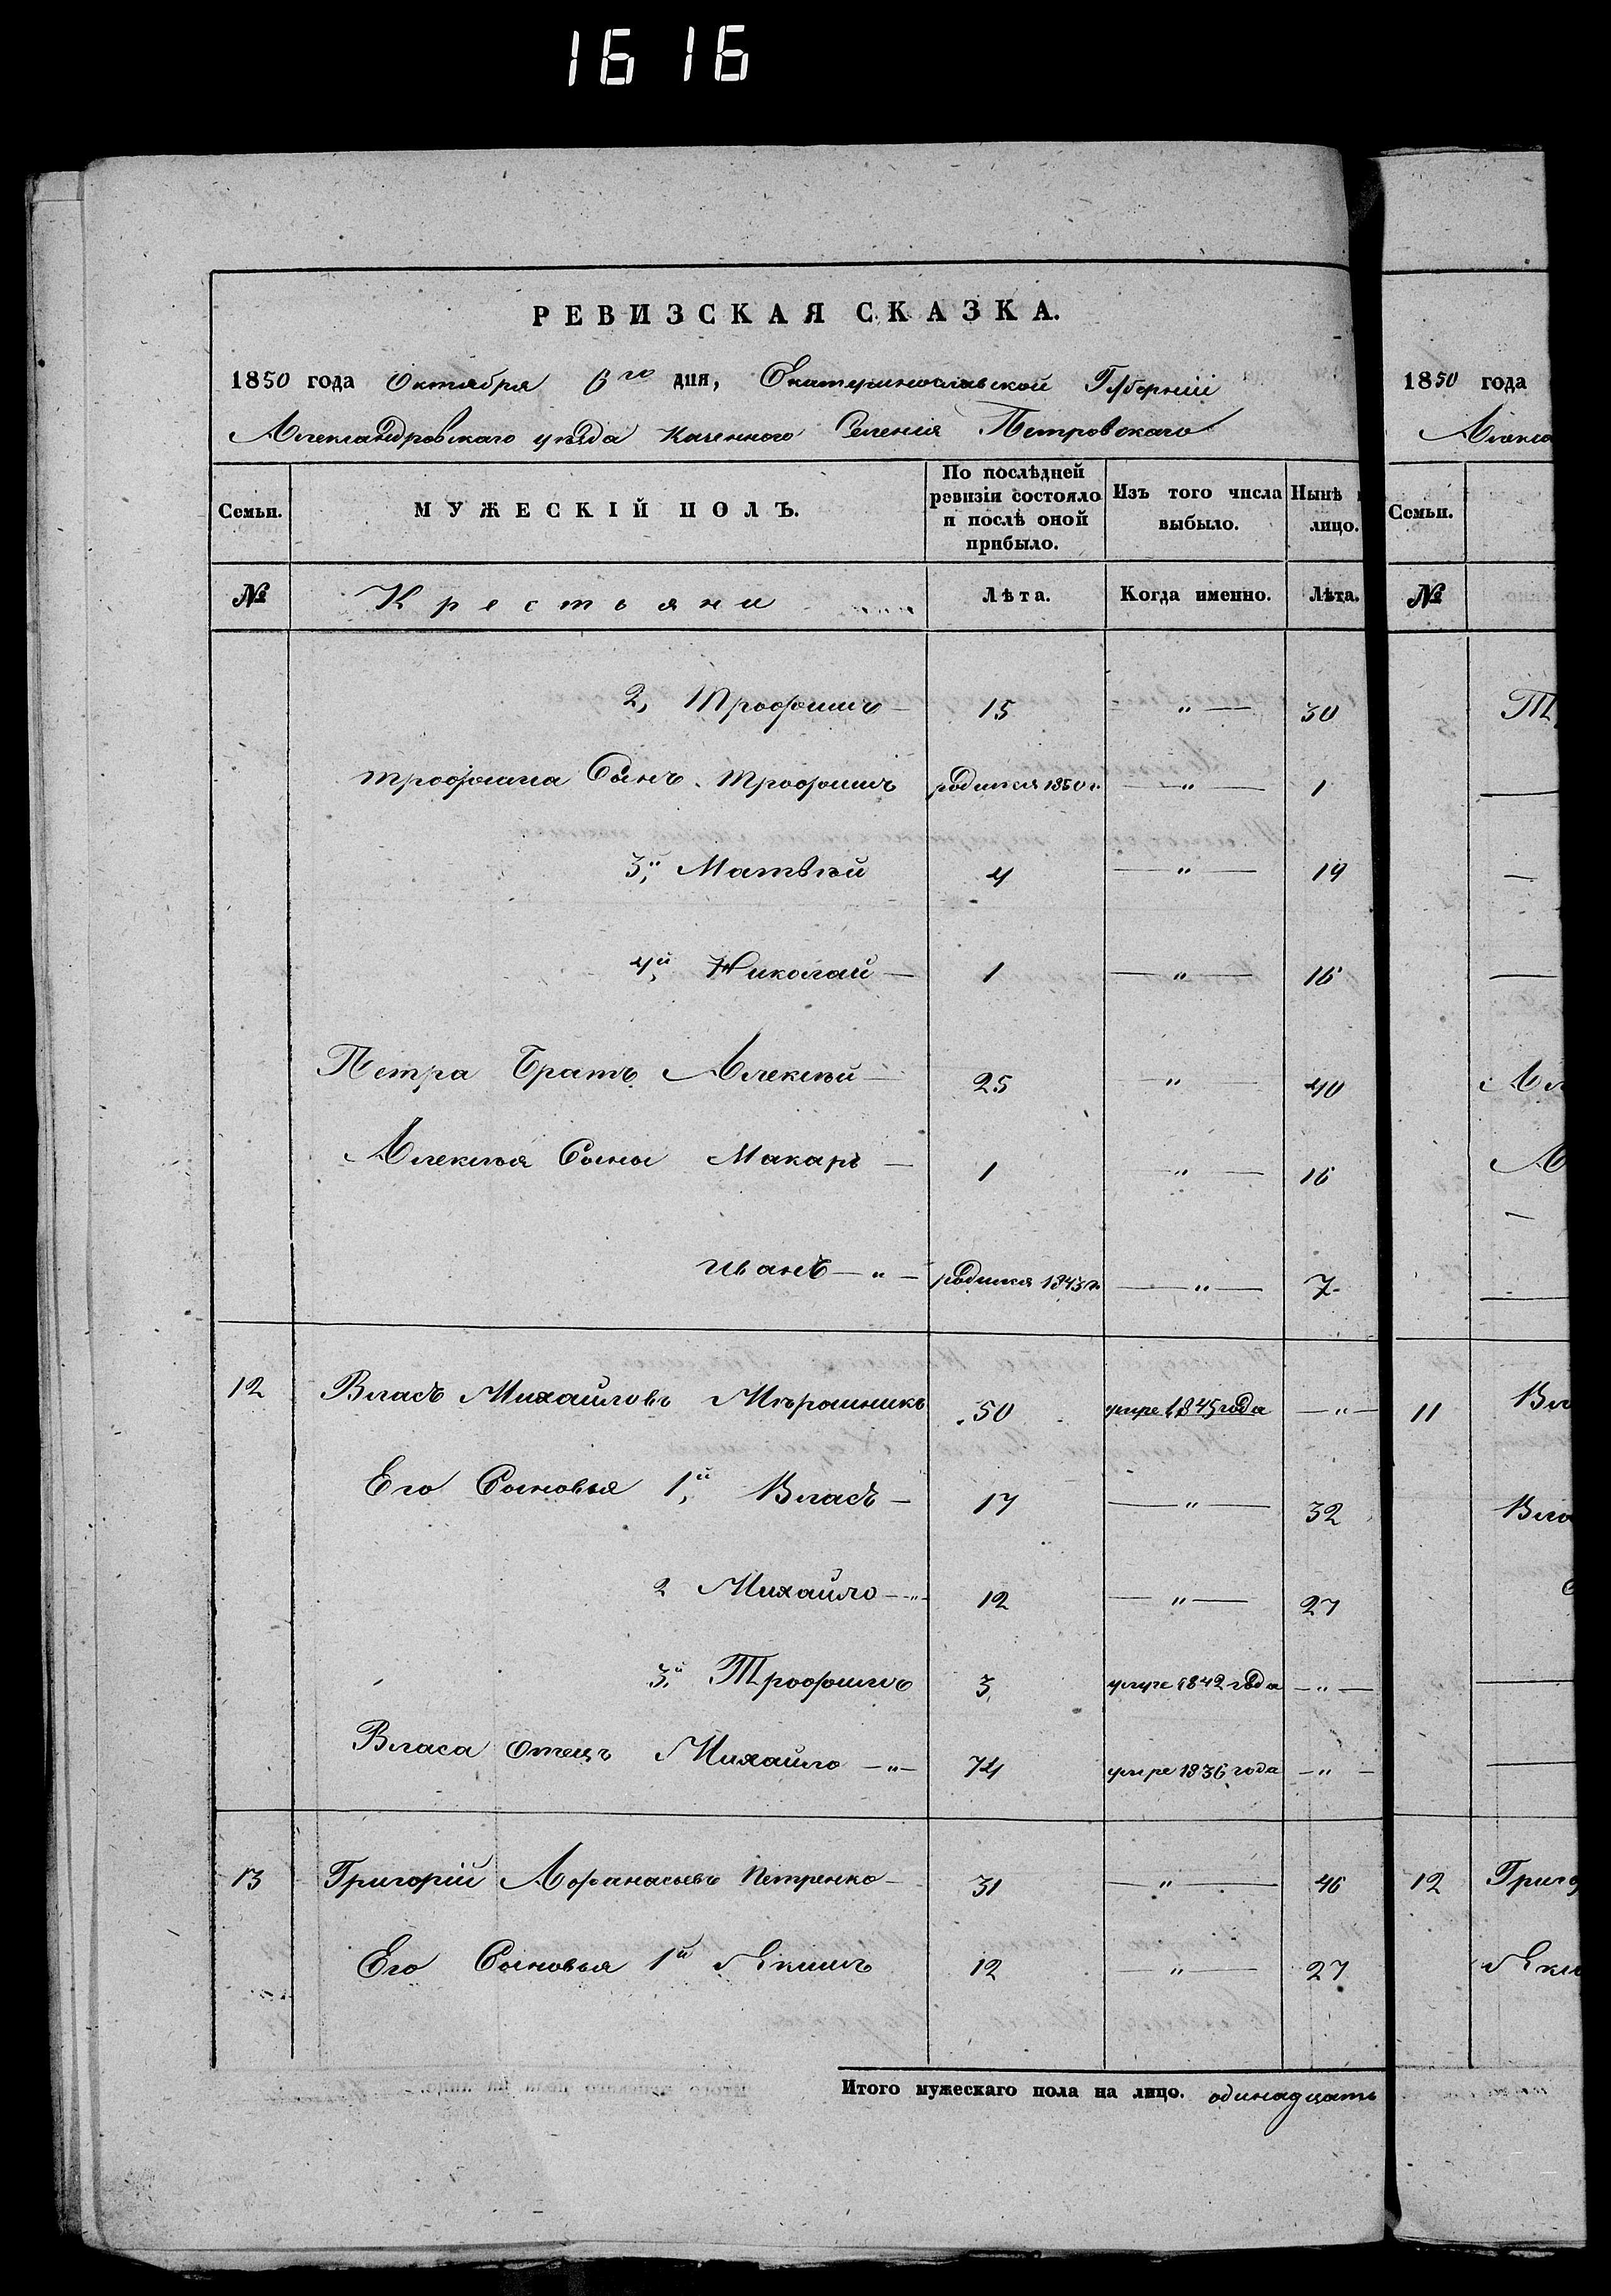 1616
РЕВИЗСКАЯ СКАЗКА.
1850 года Октября 6го дня, Екатеринославской Губерніи
Александровскаго уѣзда Казенного Селенія Петровскаго
Семьи. МУЖЕСКІЙ ПОЛЪ. По послѣдней ревизіи состояло и послѣ оной прибыло. Изъ того числа выбыло. Нынѣ лицо.
№ Крестьяни Лѣта. Когда именно. Лѣта.
2, Трофимъ — 15 — " — 30
Трофима Сынъ Трофимъ родился 1850 г. — " — 1
3й, Матвѣй 4 — " — 19
4й, Николай — 1 — " — 16
Петра Братъ Алексѣй — 25 — " — 40
Алексѣя Сыны Макаръ — 1 — " — 16
Иванъ — " — родился 1843 г. — " — 7
12 Власъ Михайловъ 50 умре 1845 года — " —
Его Сыновья 1й, Власъ — 17 — " — 32
2 Михайло — " — 12 — " — 27
3й, Трофимъ 3 умре 1842 года — " —
Власа Отецъ Михайло — " — 74 умре 1836 года — " —
13 Григорій Афанасьевъ Петренко — 31 — " — 46
Его Сыновья 1й Якимъ 12 — " — 27
Итого мужескаго пола на лицо. одинадцать
1850 года
Алекса
Семьи.
№
Т
Ал
А
11 Вла
Вла
12 Григо
Яки